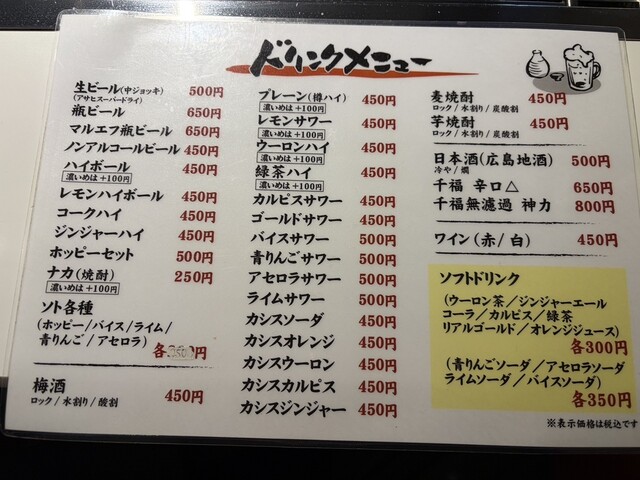 ドリンクメニュー
生ビール(中ジョッキ) 500円
(アサヒスーパードライ)
瓶ビール 650円
マルエフ瓶ビール 650円
ノンアルコールビール 450円
ハイボール 450円
濃いめは+100円
レモンハイボール 450円
コークハイ 450円
ジンジャーハイ 450円
ホッピーセット 500円
ナカ(焼酎) 250円
濃いめは+100円
ソト各種
(ホッピー/バイス/ライム/
青りんご/アセロラ)
各350円
梅酒 450円
ロック/水割り/酸割
プレーン(樽ハイ) 450円
濃いめは+100円
レモンサワー 450円
濃いめは+100円
ウーロンハイ 450円
濃いめは+100円
緑茶ハイ 450円
濃いめは+100円
カルピスサワー 450円
ゴールドサワー 450円
バイスサワー 500円
青りんごサワー 500円
アセロラサワー 500円
ライムサワー 500円
カシスソーダ 450円
カシスオレンジ 450円
カシスウーロン 450円
カシスカルピス 450円
カシスジンジャー 450円
麦焼酎 450円
ロック/水割り/炭酸割
芋焼酎 450円
ロック/水割り/炭酸割
日本酒(広島地酒) 500円
冷や/燗
千福 辛口△ 650円
千福無濾過 神力 800円
ワイン(赤/白) 450円
ソフトドリンク
(ウーロン茶/ジンジャーエール
コーラ/カルピス/緑茶
リアルゴールド/オレンジジュース)
各300円
(青りんごソーダ/アセロラソーダ
ライムソーダ/バイスソーダ)
各350円
※表示価格は税込です